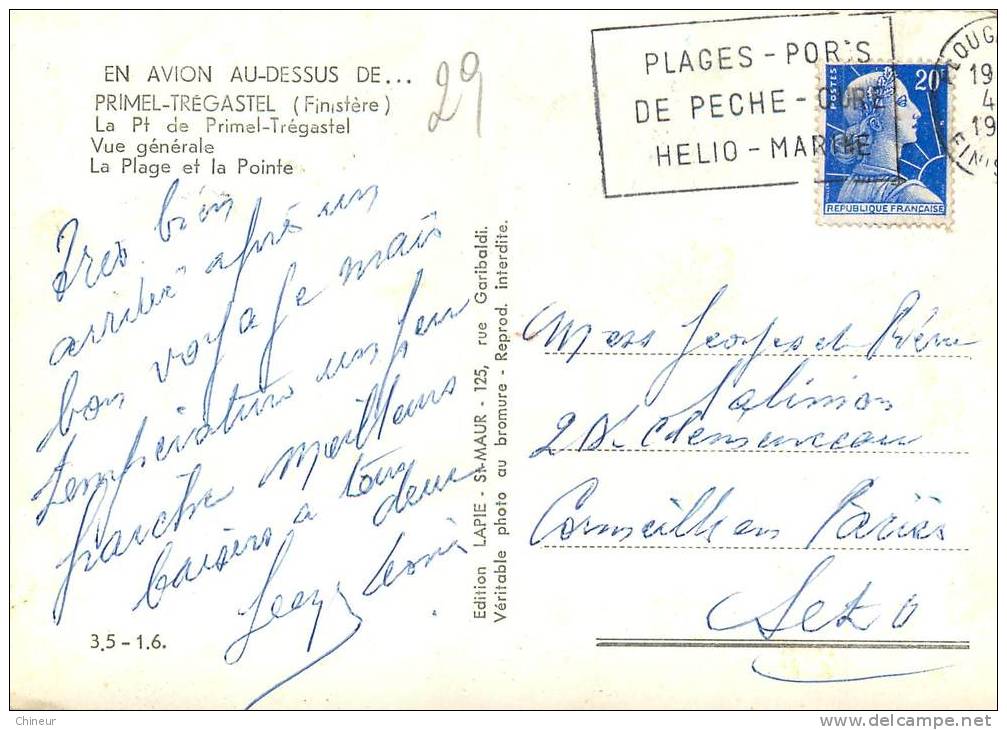 EN AVION AU-DESSUS DE...
PRIMEL-TRÉGASTEL (Finistère)
La Pt de Primel-Trégastel
Vue générale
La Plage et la Pointe
29
PLAGES - PORTS
DE PECHE - CURE
HELIO - MARINE
POSTES
20F
REPUBLIQUE FRANÇAISE
Tres bien
arrivée après un
bon voyage mais
température un peu
fraiche meilleurs
baisers a tous
deux
3,5 - 1.6.
Edition LAPIE - St-MAUR - 125, rue Garibaldi.
Véritable photo au bromure - Reprod. interdite.
Georges et
Clemenceau
Cormeilles en Parisis
Set O
Chineur
delcampe.net